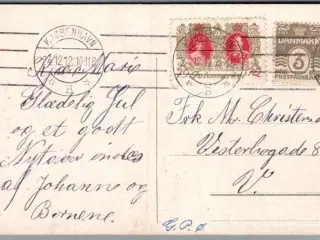 KJØBENHAVN
24.12.12. 10-11F
B
Kære Marie
Glædelig Jul
og et godt
Nytaar ønskes
af Johanne og
Børnene.
DANMARK
3
Frk M. Christens
Vesterbrogade 8
V.
G.P.Ø